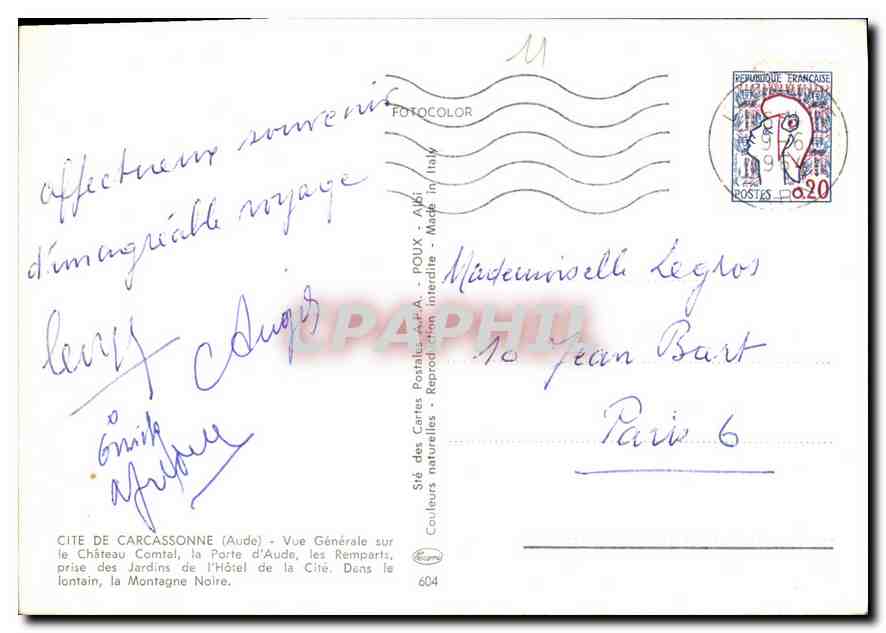 11
FOTOCOLOR
REPUBLIQUE FRANÇAISE
9-6
POSTES 0,20
affectueux souvenir
d'un agréable voyage
Mademoiselle Legros
10 Jean Bart
Paris 6
CPAPHIL
Sté des Cartes Postales A.P.A. - POUX - Albi
Couleurs naturelles - Reproduction interdite - Made in Italy
CITE DE CARCASSONNE (Aude) - Vue Générale sur
le Château Comtal, la Porte d'Aude, les Remparts,
prise des Jardins de l'Hôtel de la Cité. Dans le
lontain, la Montagne Noire.
604